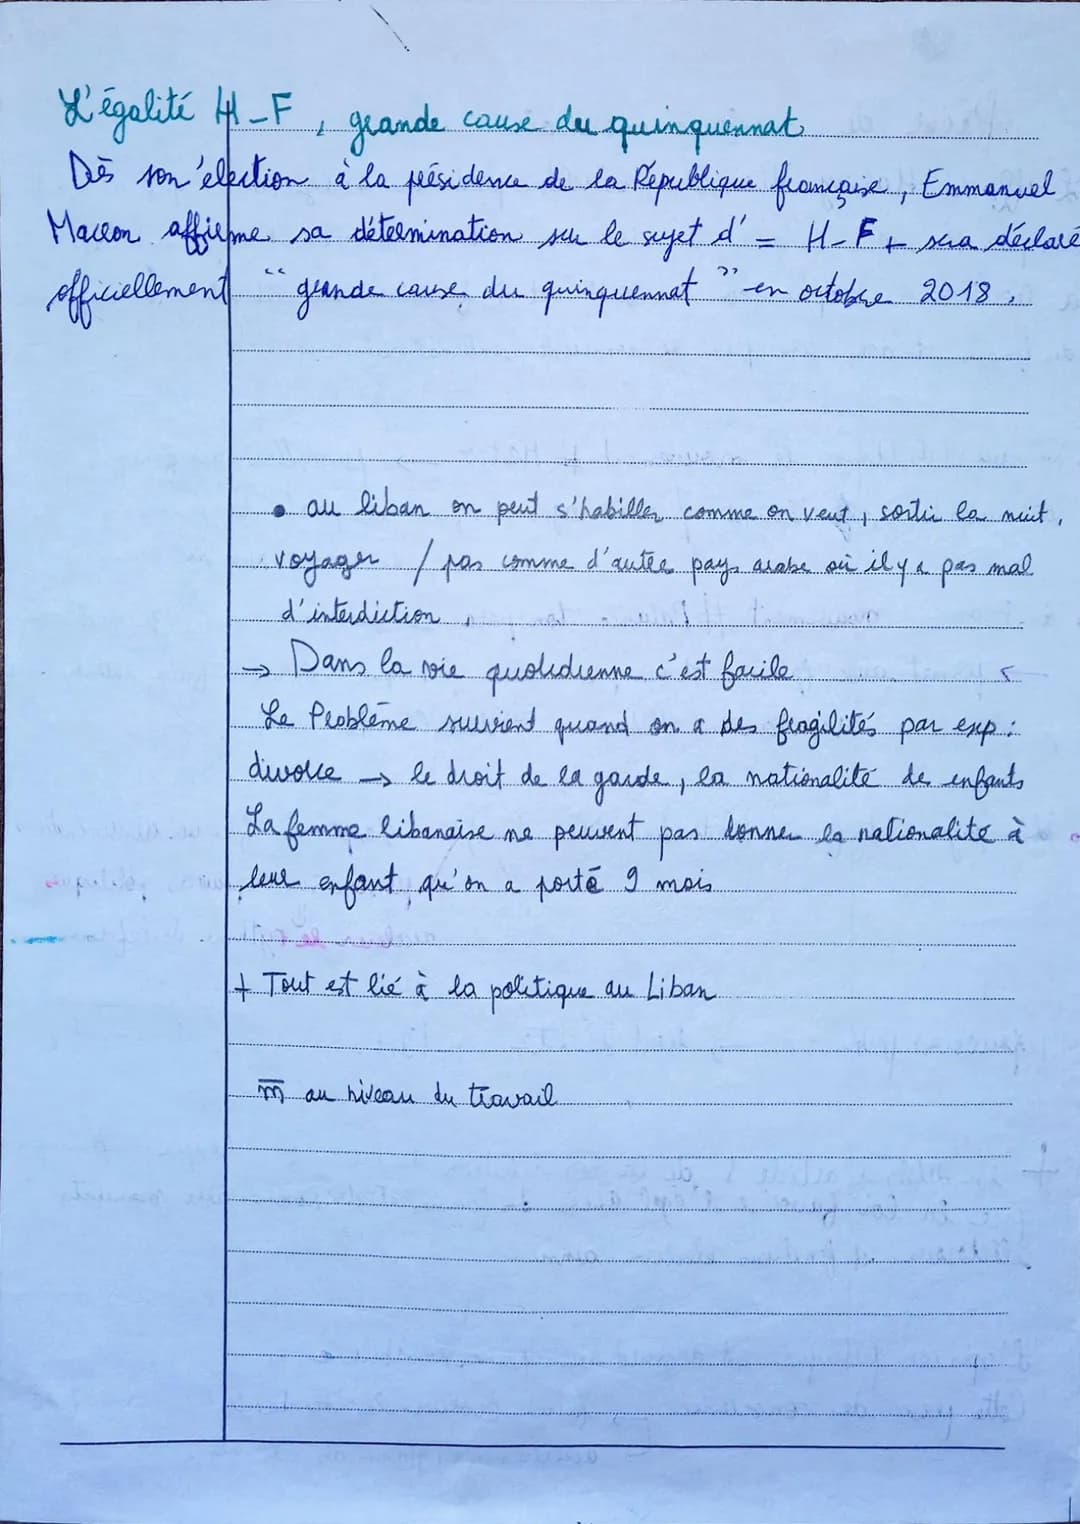 L'égalité H-F, grande cause du quinquennat
Dès son élection à la présidence de la République française, Emmanuel
Macron affirme sa détermination sur le sujet d' = H-F + sera déclaré
officiellement "grande cause du quinquennat" en octobre 2018.
• au liban on peut s'habiller comme on veut, sortir la nuit,
voyager / pas comme d'autre pays arabe où il y a pas mal
d'interdiction,
→ Dans la vie quotidienne c'est facile
Le Problème survient quand on a des fragilités par exp :
divorce → le droit de la garde, la nationalité des enfants
La femme libanaise ne peuvent pas donner la nationalité à
leur enfant, qu'on a porté 9 mois
+ Tout est lié à la politique au Liban
m̅ au niveau du travail